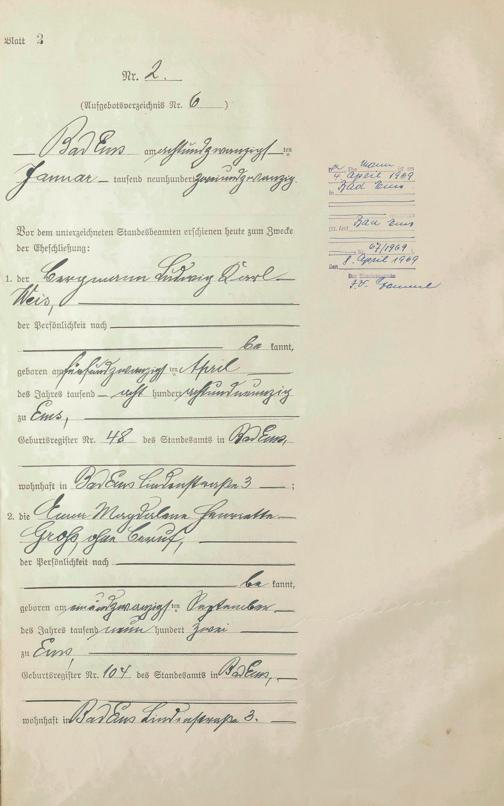 Blatt 2
Nr. 2.
(Aufgebotsverzeichnis Nr. 6)
Bad Ems am achtundzwanzigsten
Januar tausend neunhundert zweiundzwanzig.
Vor dem unterzeichneten Standesbeamten erschienen heute zum Zwecke
der Eheschließung:
1. der Bergmann Ludwig Karl
Weis,
der Persönlichkeit nach
be kannt,
geboren am fünfundzwanzigsten April
des Jahres tausend acht hundert achtundneunzig
zu Ems,
Geburtsregister Nr. 48 des Standesamts in Bad Ems,
wohnhaft in Bad Ems Lindenstraße 3 ;
2. die Emma Magdalene Henriette
Groß, ohne Beruf,
der Persönlichkeit nach
be kannt,
geboren am einundzwanzigsten September
des Jahres tausend neun hundert zwei
zu Ems,
Geburtsregister Nr. 104 des Standesamts in Bad Ems,
wohnhaft in Bad Ems Lindenstraße 3.
Mann
4. April 1969
Bad Ems
Bad Ems
67/1969
8. April 1969
Der Standesbeamte
I.V.